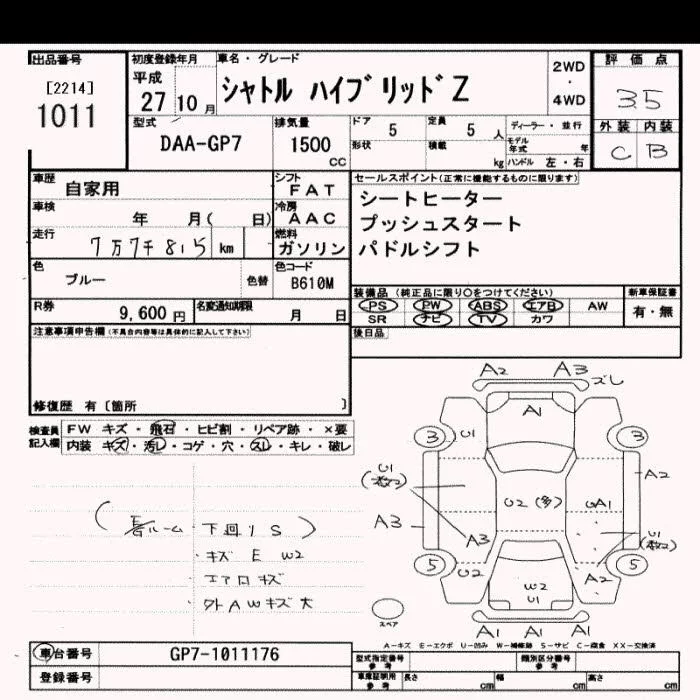 出品番号
[2214]
1011
初度登録年月
平成
27 10 月
車名・グレード
シャトル ハイブリッドZ
2WD
・
4WD
評価点
3.5
外装 内装
C B
型式
DAA-GP7
排気量
1500
CC
ドア 5
定員 5 人
形状
積載 kg
ディーラー・並行
モデル年式 年
ハンドル 左・右
車歴
自家用
シフト
FAT
車検
年 月( 日)
冷房
AAC
走行
7万7千815 km
燃料
ガソリン
色
ブルー
色替
色コード
B610M
R券
9,600 円
名変通知期限
月 日
セールスポイント(正常に機能するものに限ります)
シートヒーター
プッシュスタート
パドルシフト
装備品 (純正品に限り○をつけてください)
PS PW ABS エアB AW
SR ナビ TV カワ
新車保証書
有・無
後日品
注意事項申告欄(不具合内容等は具体的に記入して下さい)
修復歴 有〔箇所 〕
検査員記入欄
FW キズ・飛石・ヒビ割・リペア跡・×要
内装 キズ・汚レ・コゲ・穴・スレ・キレ・破レ
ルーム 下回りS
キズ E W2
エアロキズ
外AWキズ大
A2 A3 ズレ
A1
3 U1 3
U1
A2
U2(多) UA1
U1
A3 A3
5 U2 A2 5
W2
U1
A1 A1 A1
スペア
A-キズ E-エクボ U-凹み W-補修跡 S-サビ C-腐食 XX-交換済
車台番号
GP7-1011176
登録番号
型式指定番号
参考
類別区分番号
参考
車庫証明用
参考
長さ cm
幅 cm
高さ cm